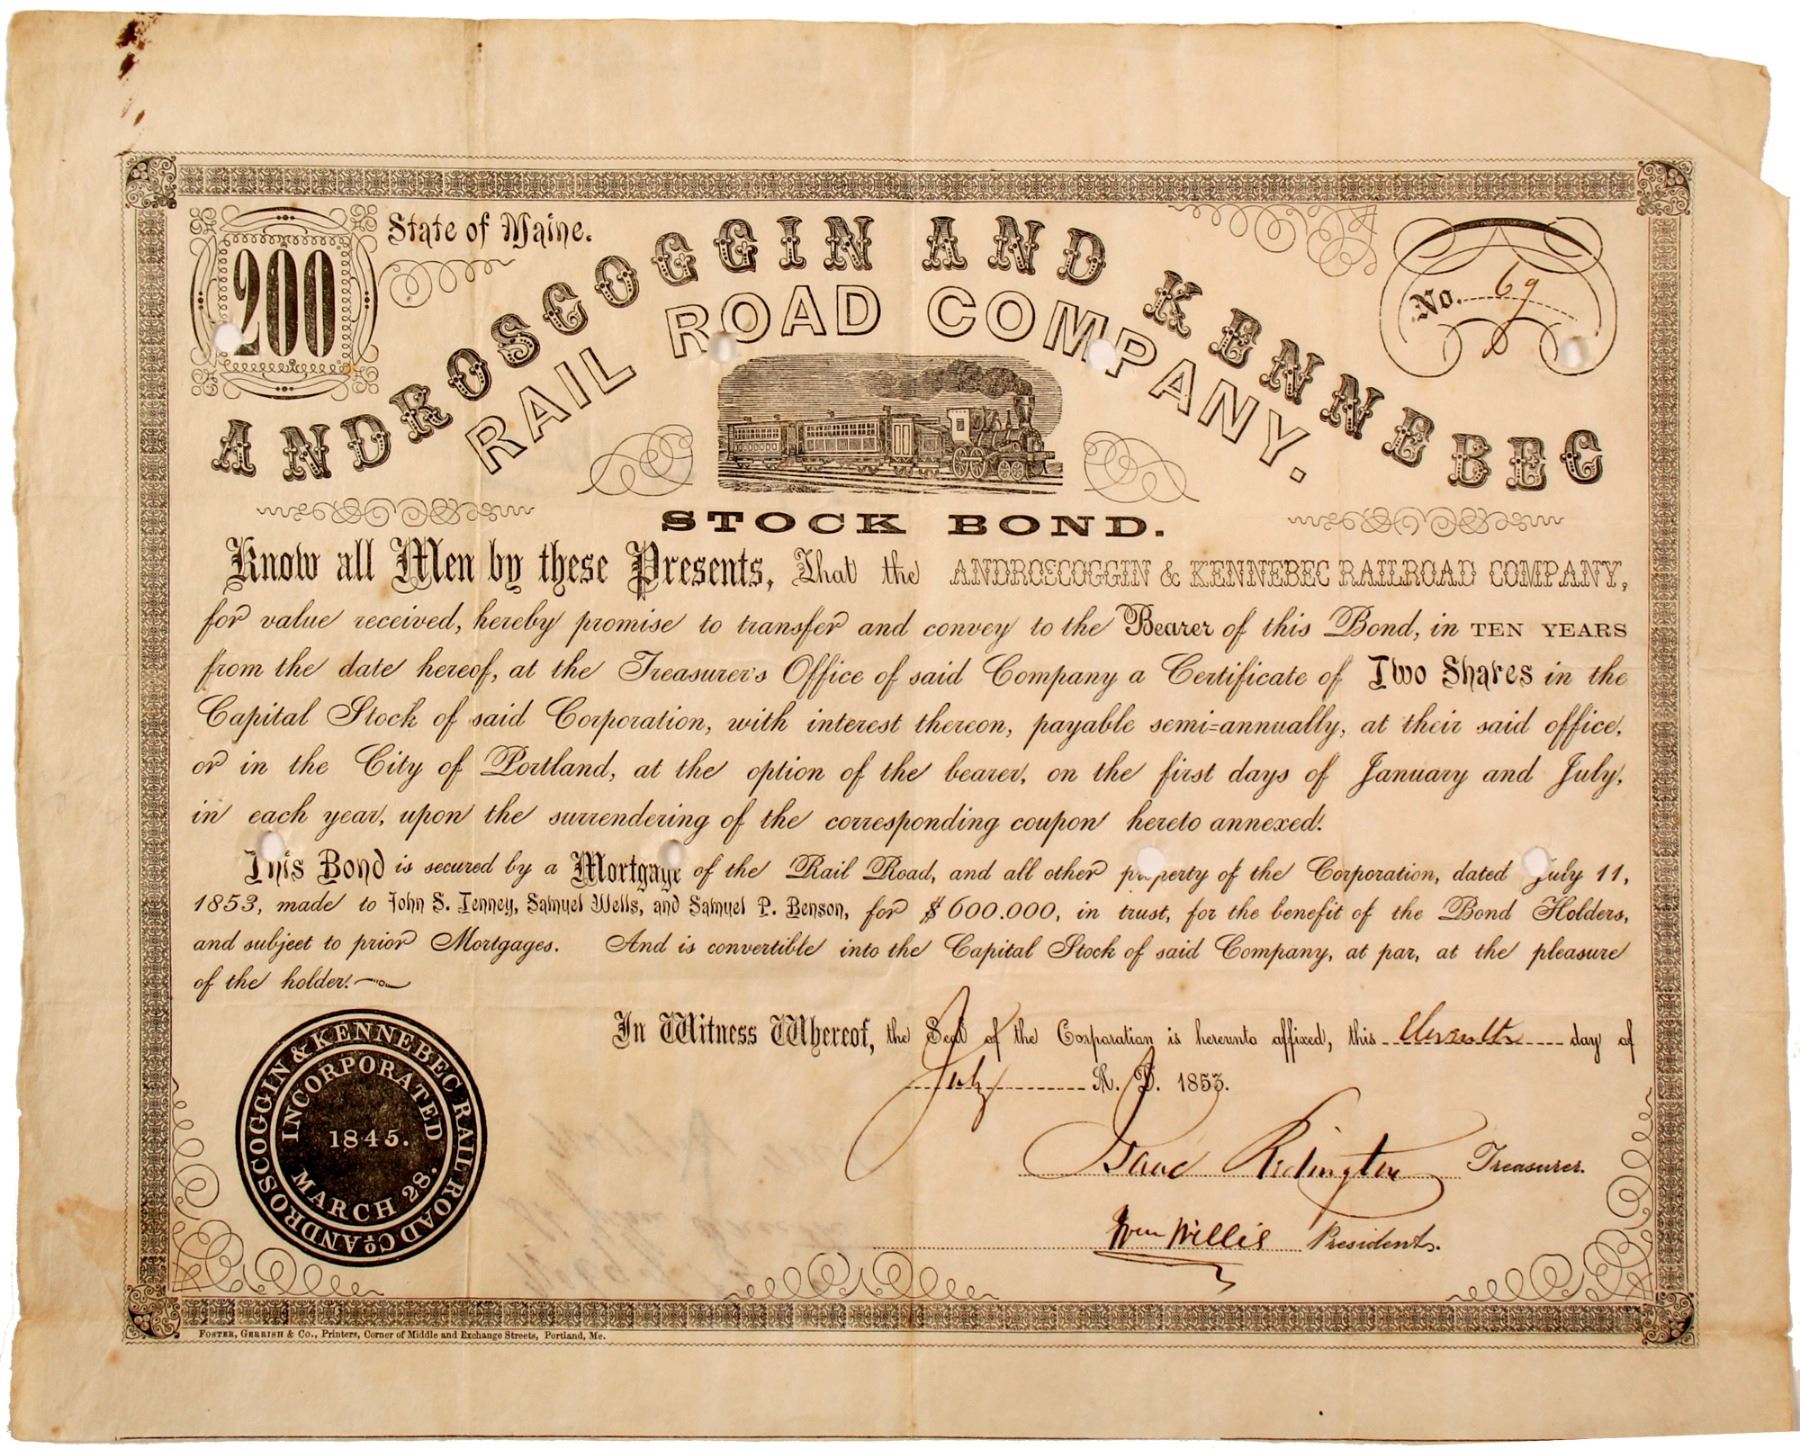 State of Maine.
200
ANDROSCOGGIN AND KENNEBEC
RAIL ROAD COMPANY.
No. 69
STOCK BOND.
Know all Men by these Presents, That the ANDROSCOGGIN & KENNEBEC RAILROAD COMPANY,
for value received, hereby promise to transfer and convey to the Bearer of this Bond, in TEN YEARS
from the date hereof, at the Treasurer's Office of said Company a Certificate of Two Shares in the
Capital Stock of said Corporation, with interest thereon, payable semi=annually, at their said office,
or in the City of Portland, at the option of the bearer, on the first days of January and July,
in each year, upon the surrendering of the corresponding coupon hereto annexed.
This Bond is secured by a Mortgage of the Rail Road, and all other property of the Corporation, dated July 11,
1853, made to John S. Tenney, Samuel Wells, and Samuel P. Benson, for $600.000, in trust, for the benefit of the Bond Holders,
and subject to prior Mortgages. And is convertible into the Capital Stock of said Company, at par, at the pleasure
of the holder.
In Witness Whereof, the Seal of the Corporation is hereunto affixed, this Eleventh day of
July A. D. 1853.
ANDROSCOGGIN & KENNEBEC RAIL ROAD Co
INCORPORATED
1845.
MARCH 28.
Isaac Redington Treasurer.
Wm Willis President.
FOSTER, GERRISH & Co., Printers, Corner of Middle and Exchange Streets, Portland, Me.